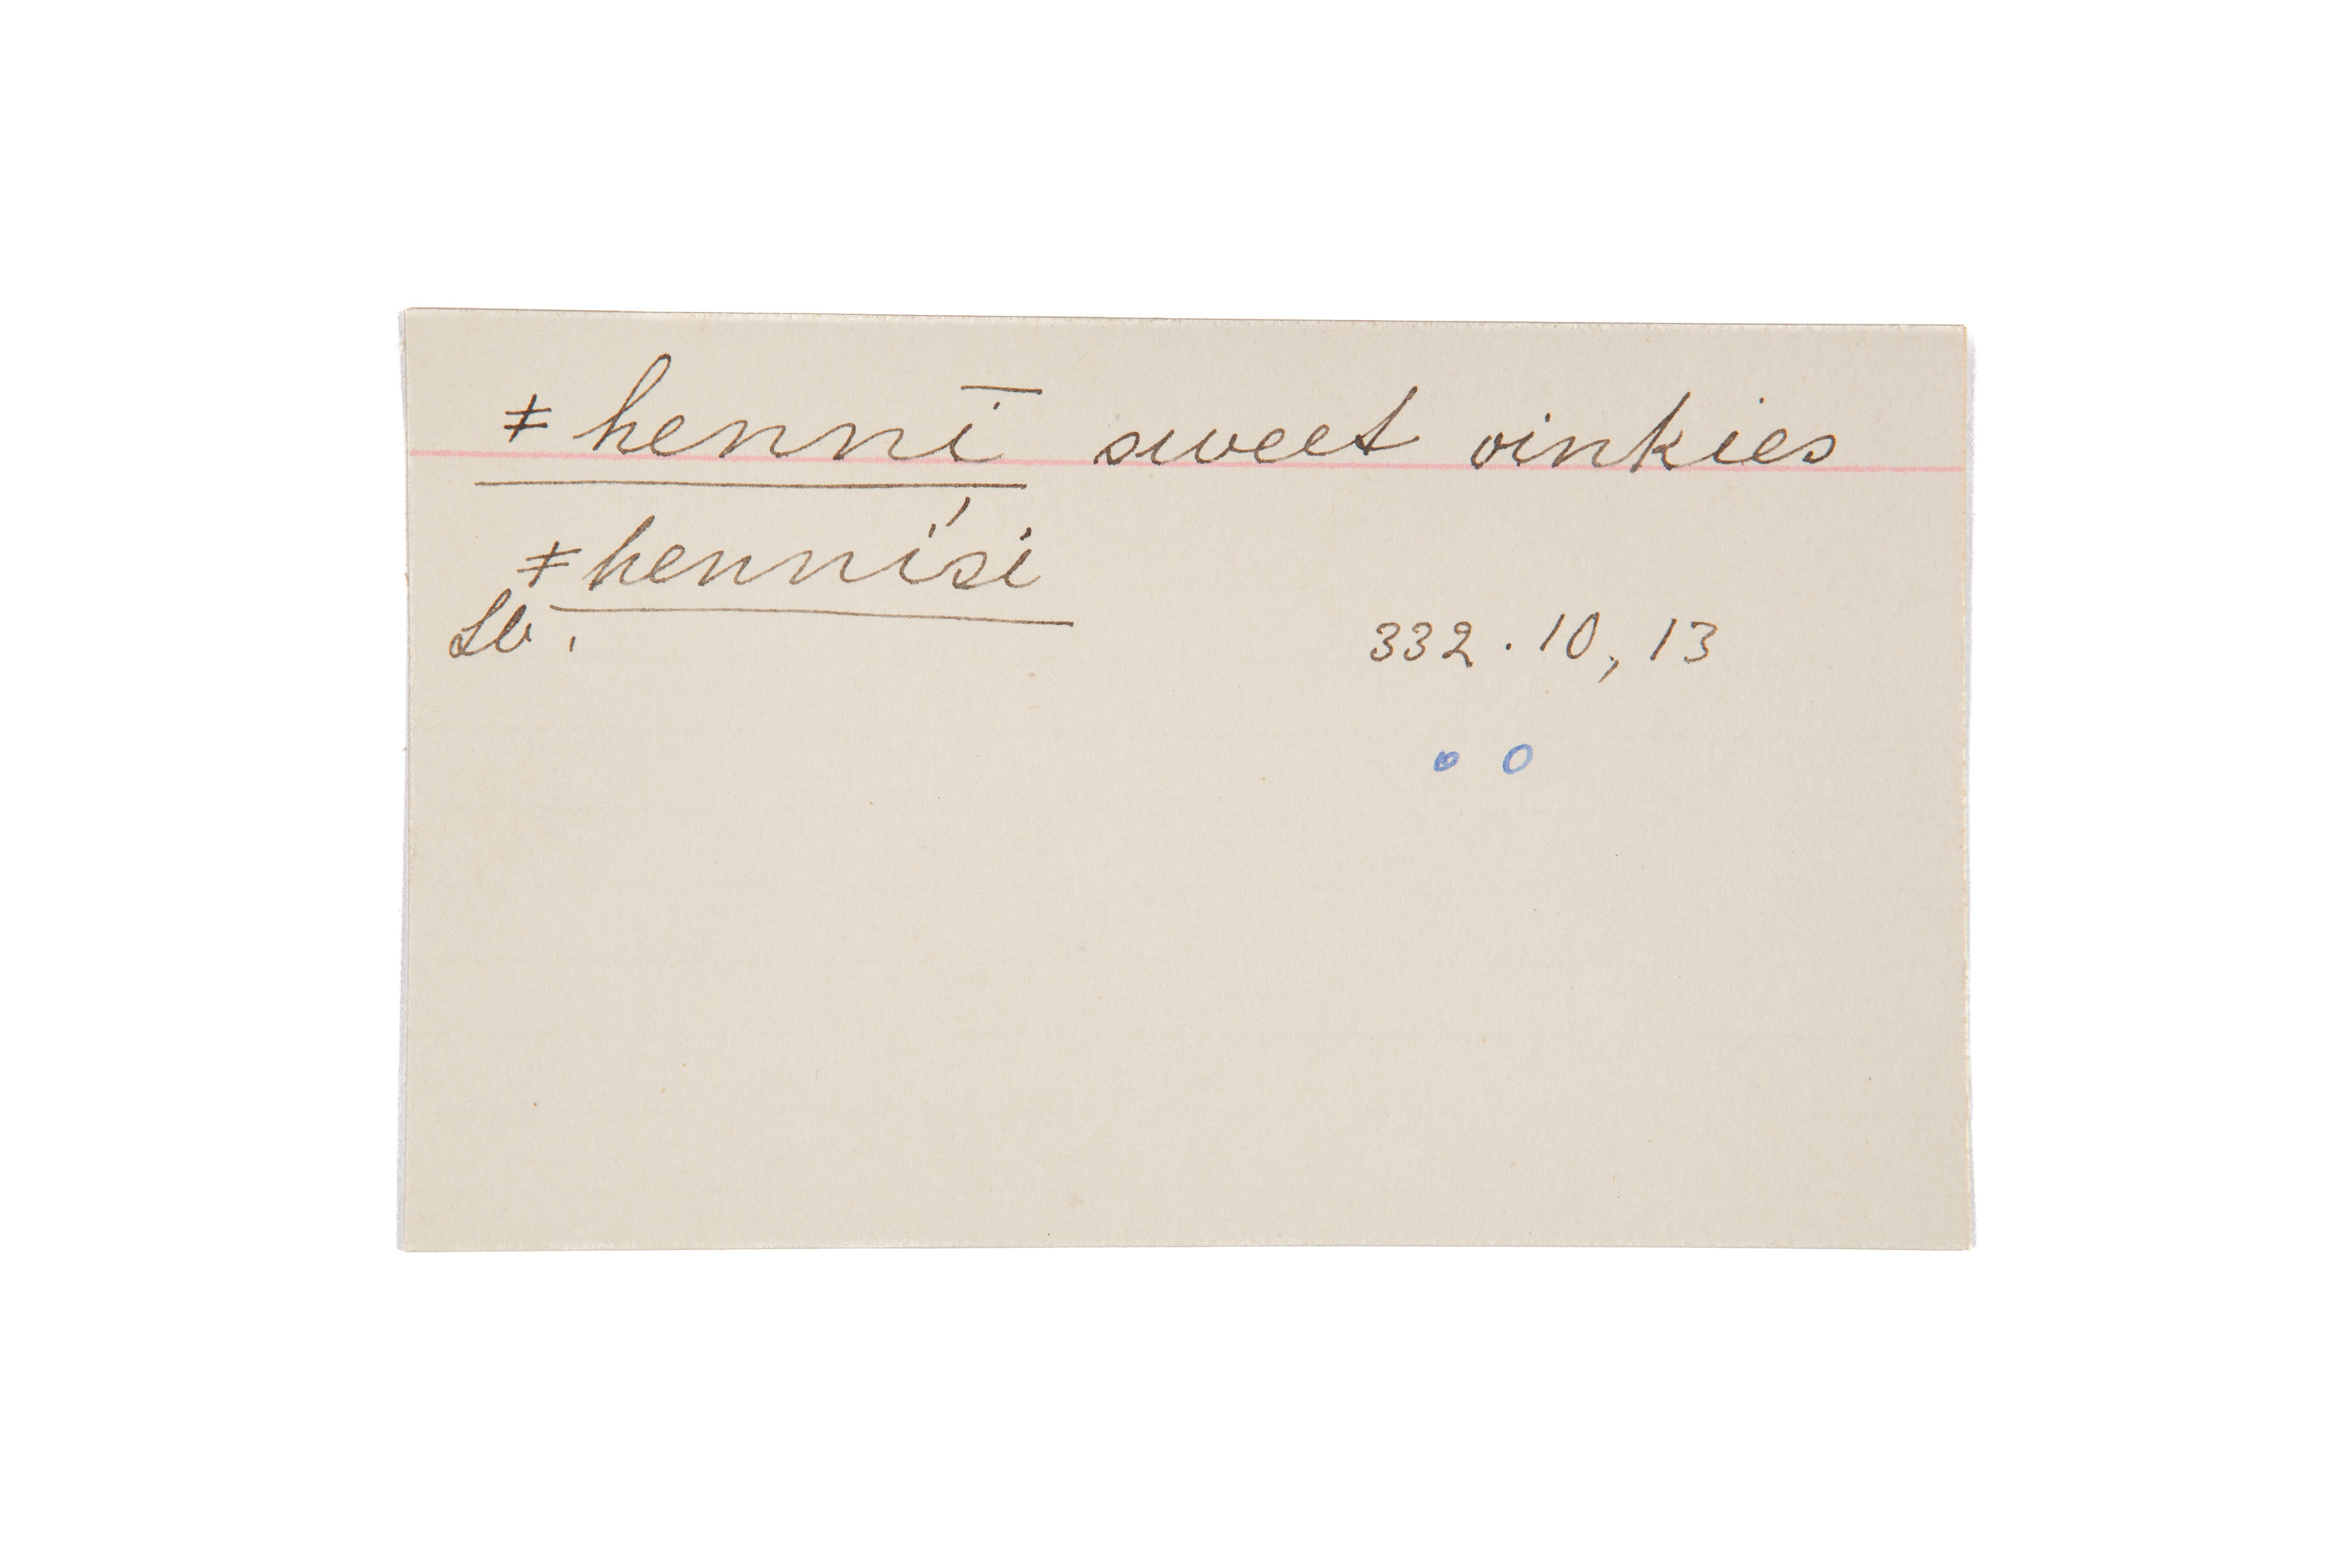 ǂhennī sweet oinkies
ǂhenni'si
Lb. 332. 10, 13